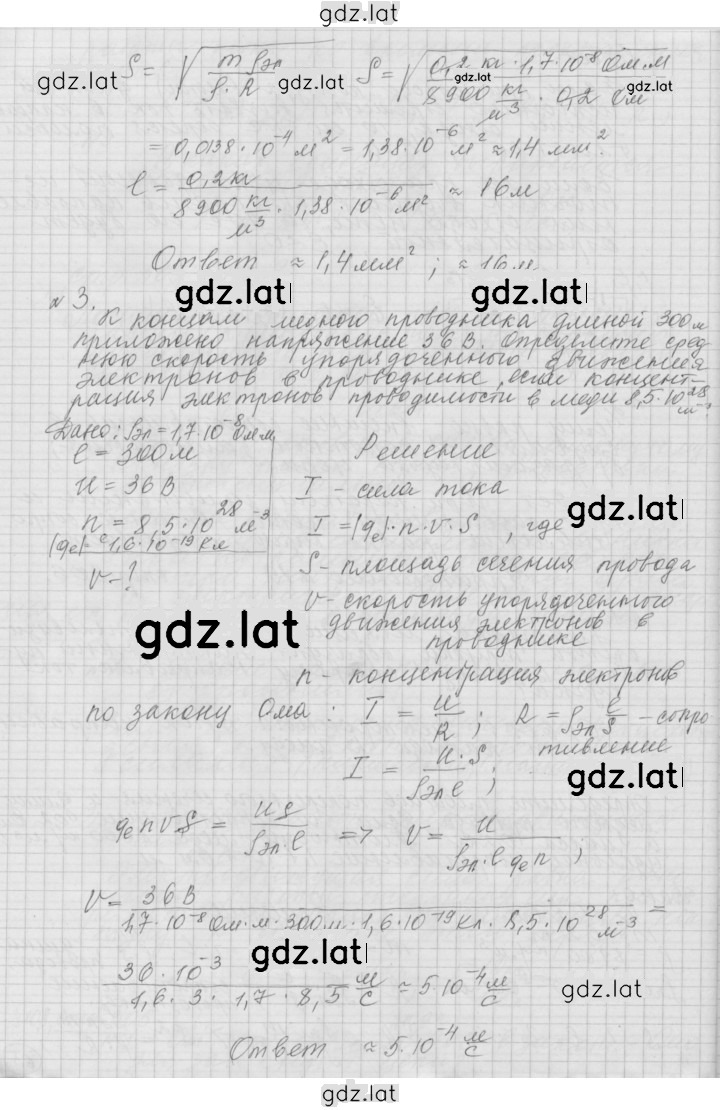 gdz.lat
S = √(m ρэл / ρ·R) S = √(0,2 кг · 1,7·10⁻⁸ Ом·м / 8900 кг/м³ · 0,2 Ом)
gdz.lat gdz.lat gdz.lat gdz.lat
= 0,0138·10⁻⁴ м² = 1,38·10⁻⁶ м² ≈ 1,4 мм².
l = 0,2 кг / 8900 кг/м³ · 1,38·10⁻⁶ м² ≈ 16 м
Ответ ≈ 1,4 мм² ; ≈ 16 м.
gdz.lat gdz.lat
№ 3.
К концам медного проводника длиной 300 м
приложено напряжение 36 В. Определите сред-
нюю скорость упорядоченного движения
электронов в проводнике, если концент-
рация электронов проводимости в меди 8,5·10²⁸ м⁻³
Дано: ρэл = 1,7·10⁻⁸ Ом·м
l = 300 м Решение
U = 36 В I - сила тока
gdz.lat
n = 8,5·10²⁸ м⁻³ I = |qe|·n·v·S , где
|qe| = 1,6·10⁻¹⁹ Кл
S - площадь сечения провода
v - ?
v - скорость упорядоченного
движения электронов в
проводнике
gdz.lat
n - концентрация электронов
по закону Ома : I = U/R ; R = ρэл l/S - сопро
тивление
I = U·S / ρэл l ;
gdz.lat
qe n v S = U S / ρэл·l => v = U / ρэл·l qe n ;
v = 36 В / 1,7·10⁻⁸ Ом·м·300 м·1,6·10⁻¹⁹ Кл · 8,5·10²⁸ м⁻³ =
gdz.lat
36·10⁻³ / 1,6·3·1,7·8,5 м/с ≈ 5·10⁻⁴ м/с
gdz.lat
Ответ ≈ 5·10⁻⁴ м/с
gdz.lat